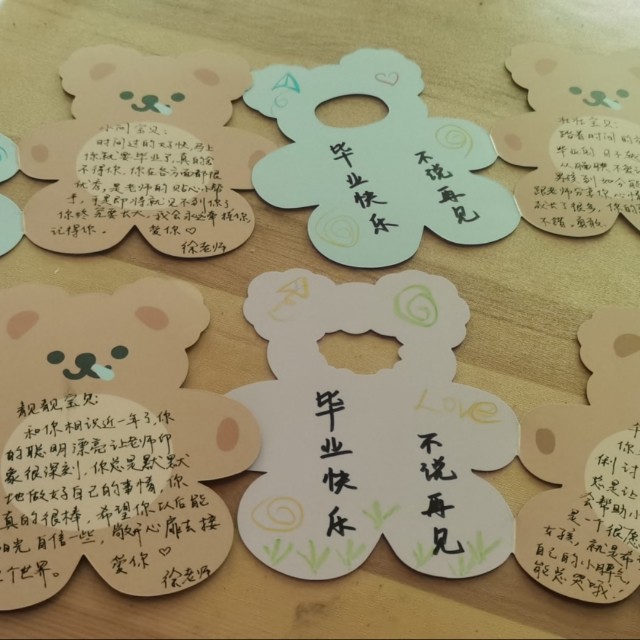 宝贝:
时间过的好快,马上
你就要毕业了,真的舍
不得你,你在各方面都很
优秀,是老师的贴心小帮
手,于是即将就见不到你了
你终究要长大,我会永远牵挂你
记得你。 爱你♡
徐老师
毕业快乐
不说再见
宝贝:
随着时间的
毕业的
跟老师分享你
长大了很多,你的
不错。喜欢
靓靓宝贝:
和你相识近一年了,你
的聪明漂亮让老师印
象很深刻,你总是默默
地做好自己的事情,你
真的很棒,希望你以后能
阳光自信一些,敞开心扉去接
这个世界。 爱你♡
徐老师
毕业快乐
LOVE
不说再见
你
倒讨
总是让
会帮助小
是一个很
女孩,就是希
自己的小脾气
能总哭哦。